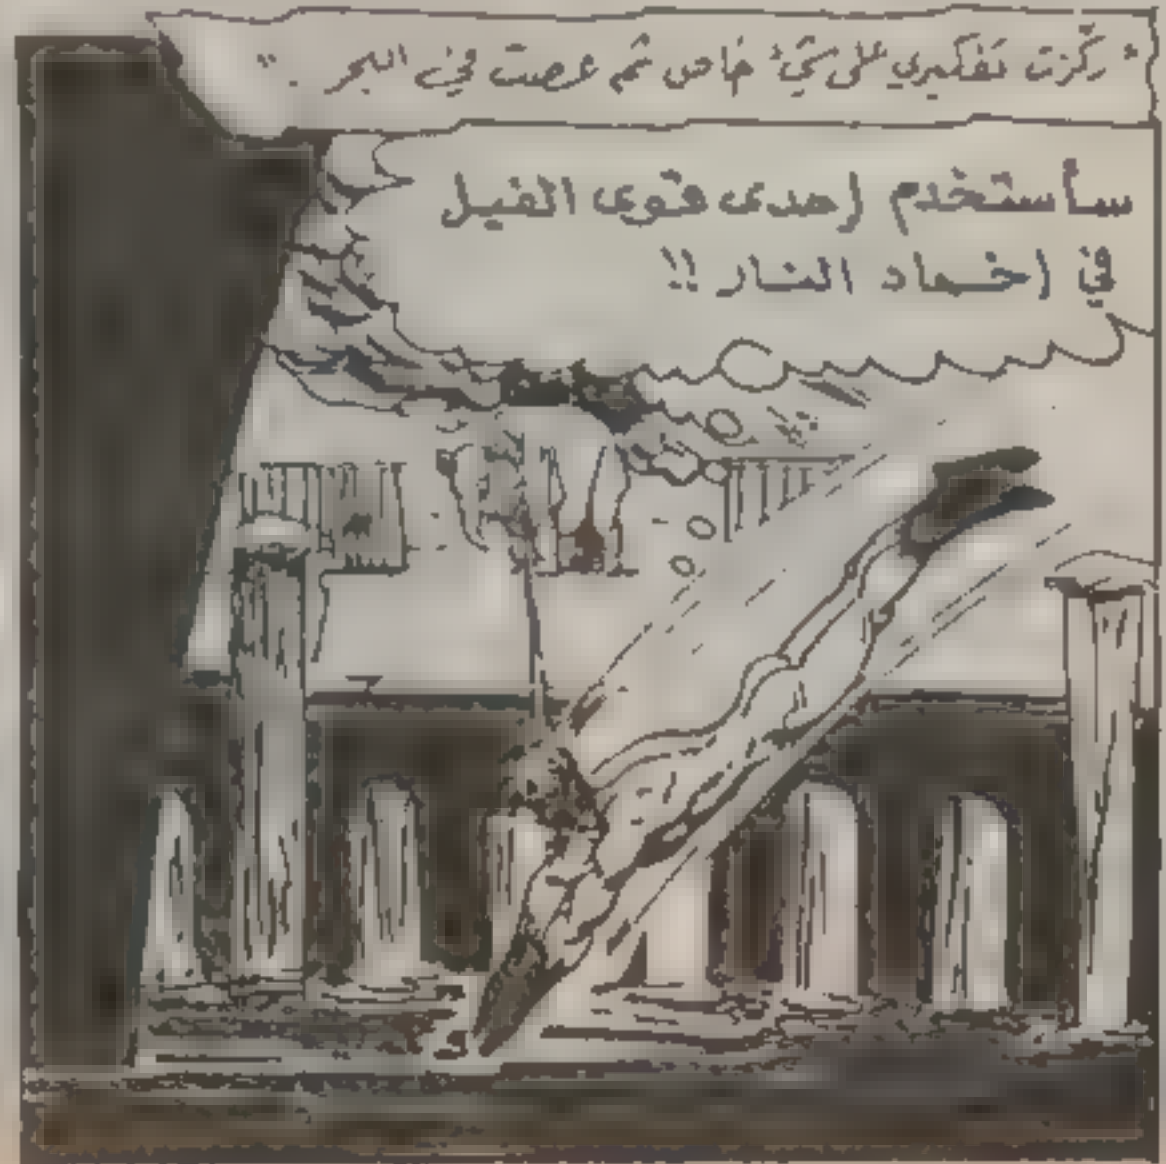 " ركّزت تفكيري على شيء خاص ثم غصت في البحر . "
سأستخدم إحدى قوى الفيل
في إخماد النار !!